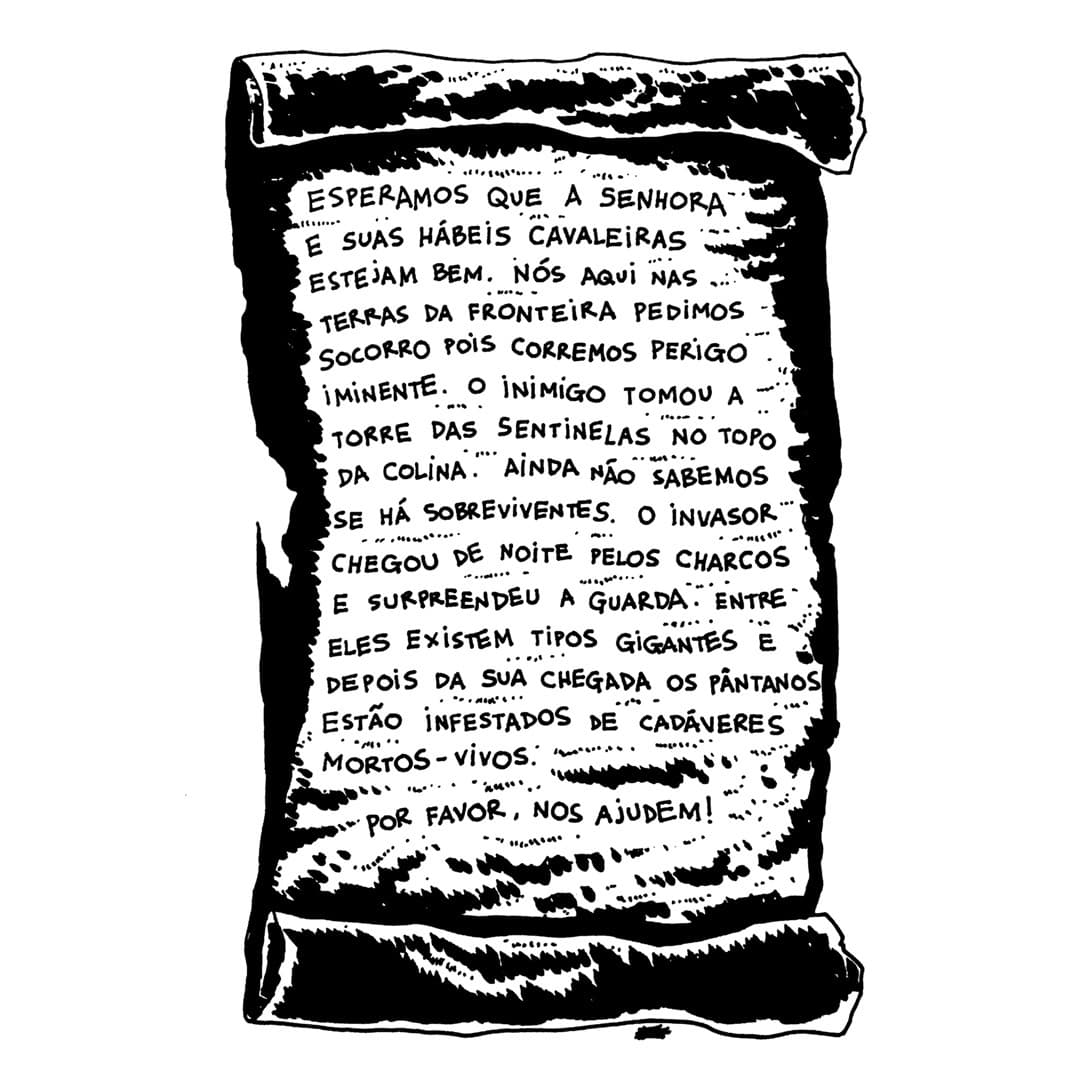 ESPERAMOS QUE A SENHORA
E SUAS HÁBEIS CAVALEIRAS
ESTEJAM BEM. NÓS AQUI NAS
TERRAS DA FRONTEIRA PEDIMOS
SOCORRO POIS CORREMOS PERIGO
IMINENTE. O INIMIGO TOMOU A
TORRE DAS SENTINELAS NO TOPO
DA COLINA. AINDA NÃO SABEMOS
SE HÁ SOBREVIVENTES. O INVASOR
CHEGOU DE NOITE PELOS CHARCOS
E SURPREENDEU A GUARDA. ENTRE
ELES EXISTEM TIPOS GIGANTES E
DEPOIS DA SUA CHEGADA OS PÂNTANOS
ESTÃO INFESTADOS DE CADÁVERES
MORTOS-VIVOS.
POR FAVOR, NOS AJUDEM!